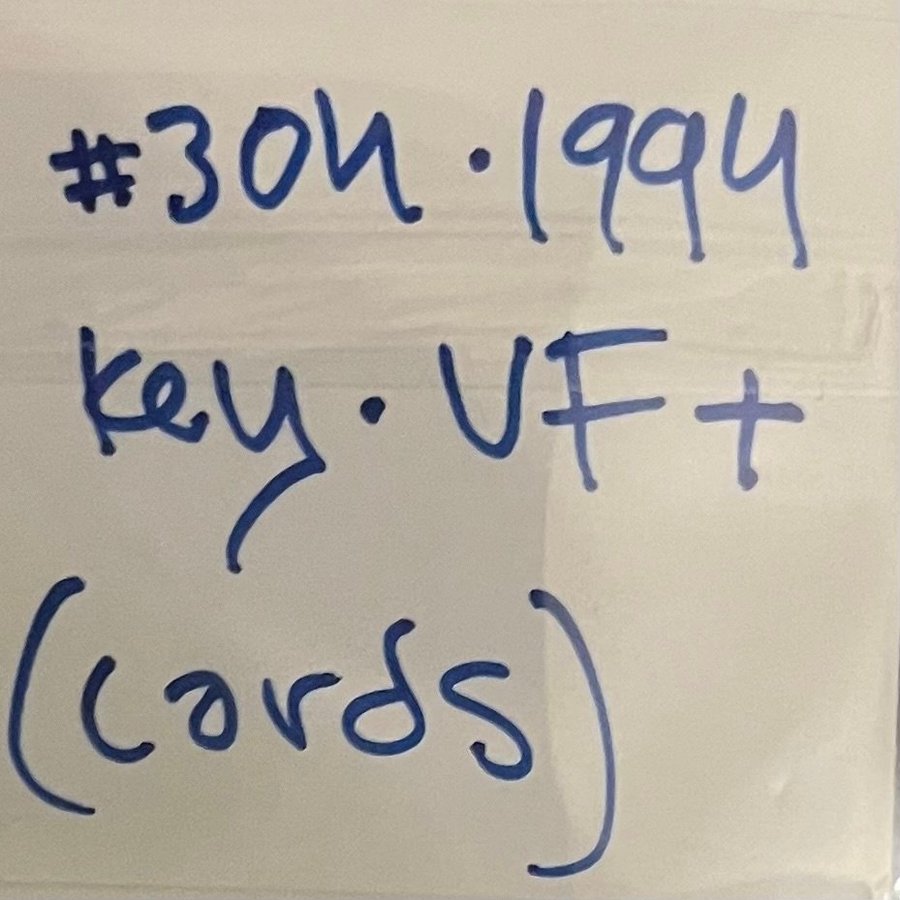 #304 · 1994
Key · VF+
(cards)